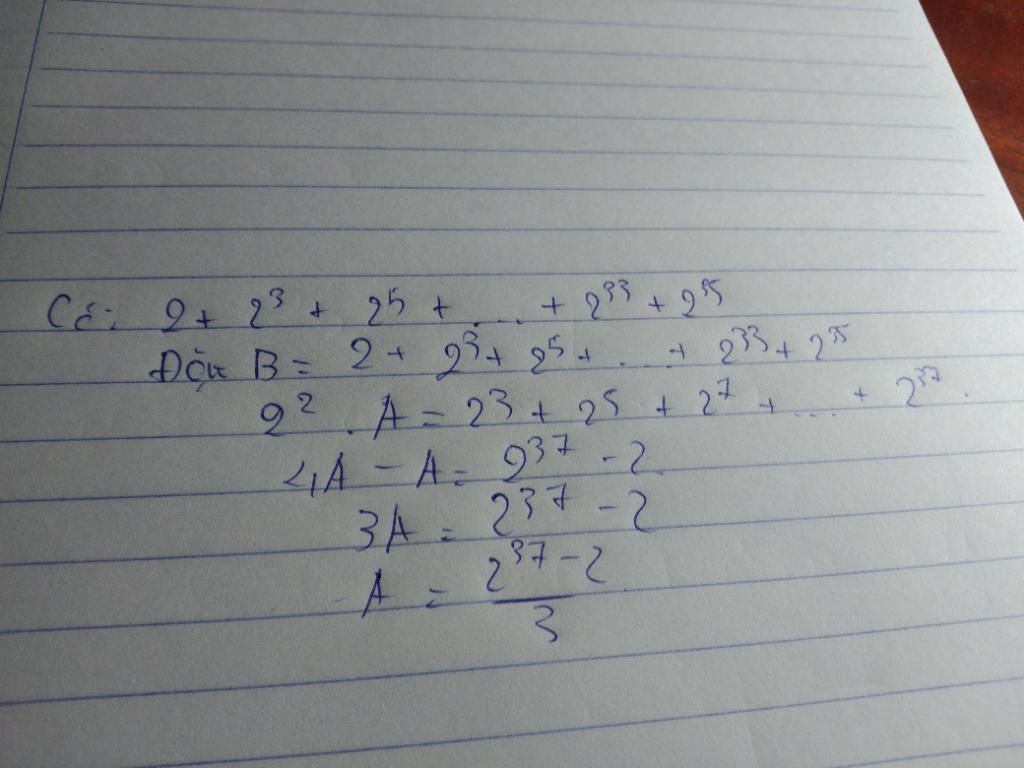 Có: 2 + 2³ + 2⁵ + .... + 2³³ + 2³⁵
Đặt B = 2 + 2³ + 2⁵ + ... + 2³³ + 2³⁵
2² . A = 2³ + 2⁵ + 2⁷ + .... + 2³⁷.
4A - A = 2³⁷ - 2
3A = 2³⁷ - 2
A = (2³⁷ - 2)/3